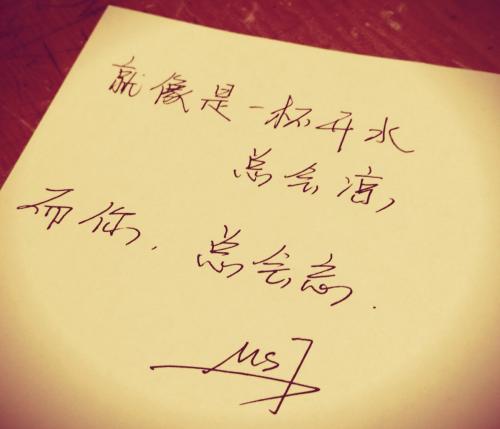 就像是一杯开水
总会凉,
而你.总会忘.
MSJ